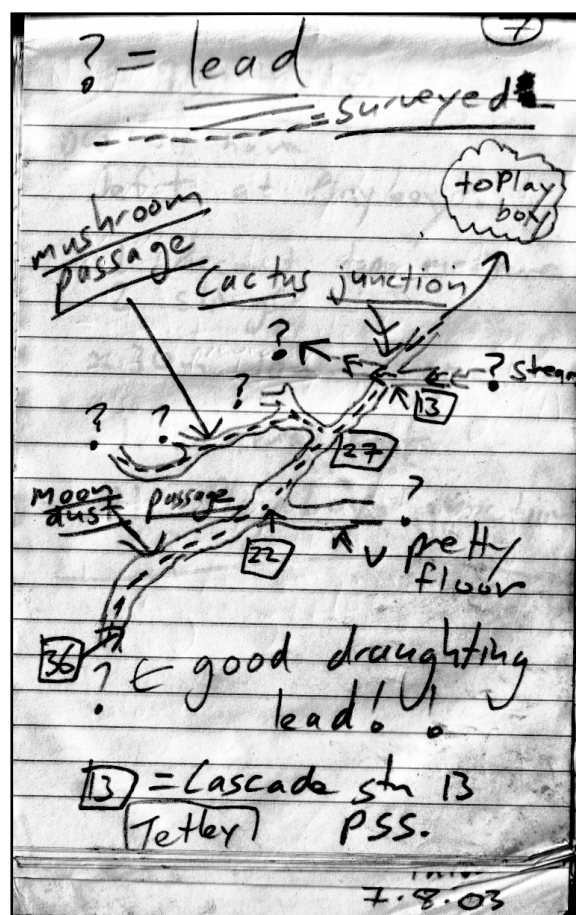 7
? = lead
= surveyed
to Play
box
mushroom
passage
Cactus junction
?
? stream
13
?
? ?
27
moon
dust passage
?
22
v pretty
floor
36
? ← good draughting
lead!!
13 = Cascade stn 13
Tetley PSS.
7.8.03